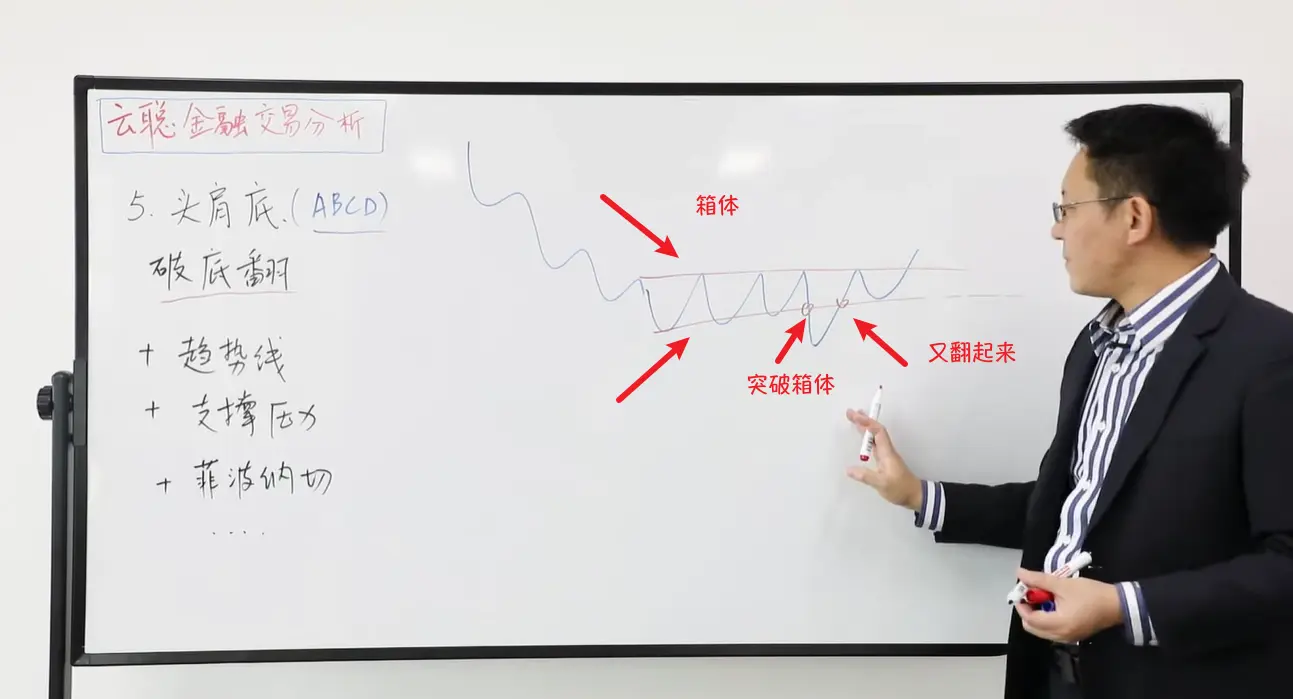 云聪·金融交易分析
5. 头肩底.(ABCD)
破底翻
+ 趋势线
+ 支撑压力
+ 菲波纳切
....
箱体
突破箱体
又翻起来